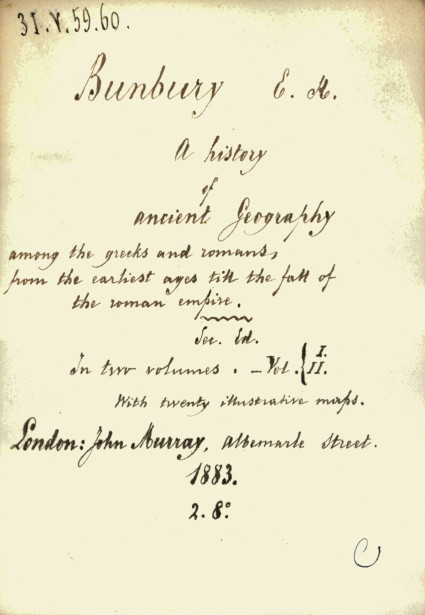 31.V.59.60.
Bunbury E. H.
A history
of
ancient Geography
among the greeks and romans,
from the earliest ages till the fall of
the roman empire.
Sec. Ed.
In two volumes. – Vol. { I.
II.
With twenty illustrative maps.
London: John Murray, Albemarle Street.
1883.
2. 8°
C